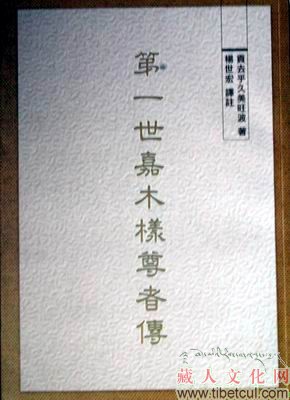 貢去乎久美旺波 著
楊世宏 譯註
第一世嘉木樣尊者傳
藏人文化网
www.tibetcul.com